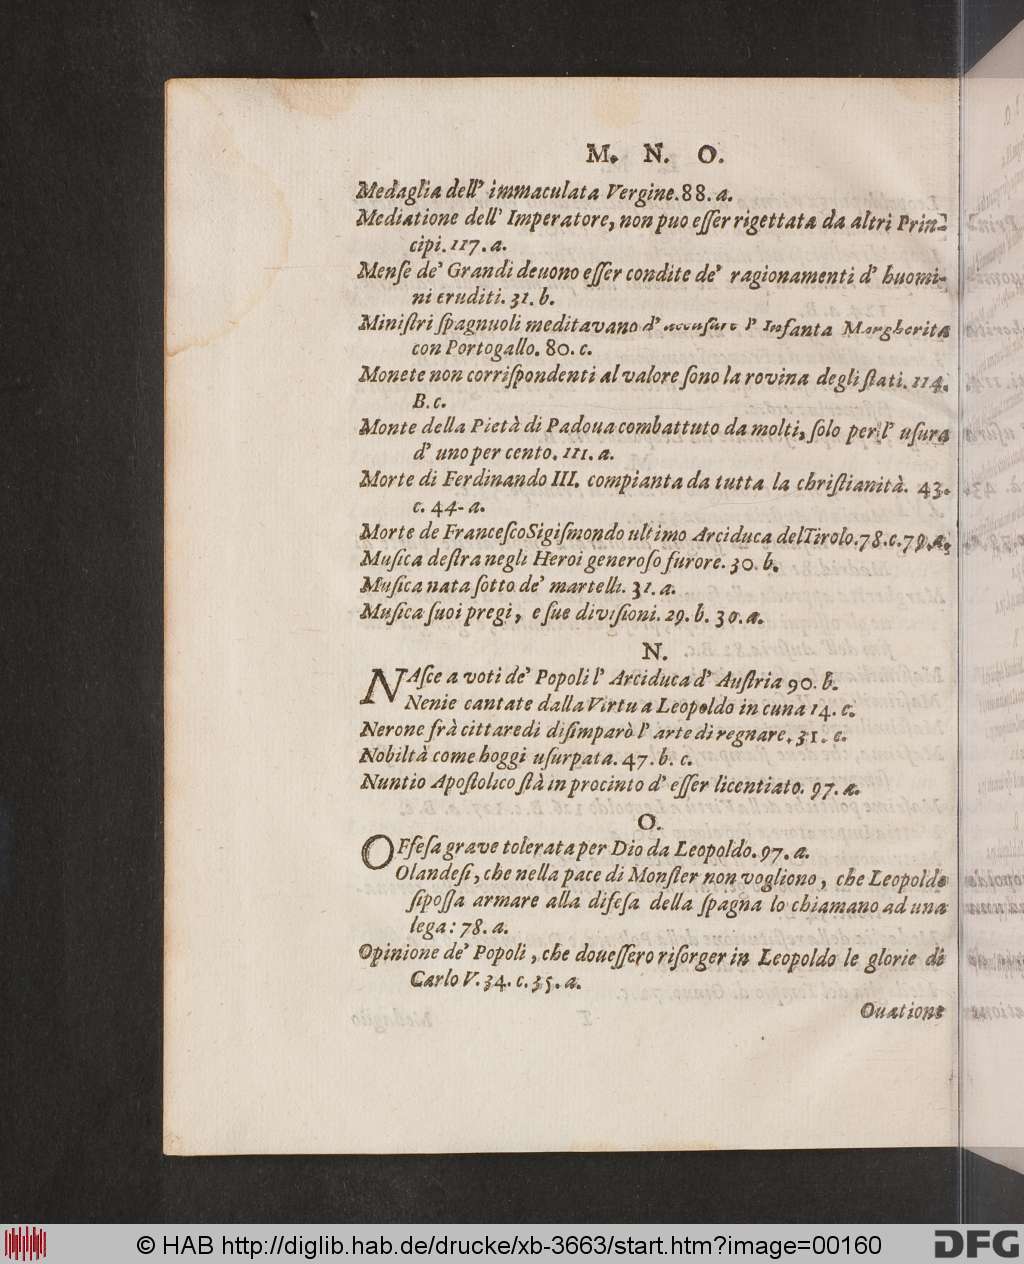 M. N. O.
Medaglia dell' immaculata Vergine. 88. a.
Mediatione dell' Imperatore, non puo eſſer rigettata da altri Prin-
cipi. 117. a.
Menſe de' Grandi deuono eſſer condite de' ragionamenti d' huomi-
ni eruditi. 31. b.
Miniſtri ſpagnuoli meditavano d' l' Infanta Margherita
con Portogallo. 80. c.
Monete non corriſpondenti al valore ſono la rovina degli ſtati. 114.
B. c.
Monte della Pietà di Padoua combattuto da molti, ſolo per l' uſura
d' uno per cento. 111. a.
Morte di Ferdinando III. compianta da tutta la chriſtianità. 43.
c. 44. a.
Morte de Franceſco Sigiſmondo ultimo Arciduca del Tirolo. 78. c. 79. a.
Muſica deſtra negli Heroi generoſo furore. 30. b.
Muſica nata ſotto de' martelli. 31. a.
Muſica ſuoi pregi, e ſue diviſioni. 29. b. 30. a.
N.
NAſce a voti de' Popoli l' Arciduca d' Auſtria 90. b.
Nenie cantate dalla Virtu a Leopoldo in cuna 14. c.
Nerone frà cittaredi diſimparò l' arte di regnare. 31. c.
Nobiltà come hoggi uſurpata. 47. b. c.
Nuntio Apoſtolico ſtà in procinto d' eſſer licentiato. 97. a.
O.
OFfeſa grave tolerata per Dio da Leopoldo. 97. a.
Olandeſi, che nella pace di Monſter non vogliono, che Leopoldo
ſipoſſa armare alla difeſa della ſpagna lo chiamano ad una
lega: 78. a.
Opinione de' Popoli, che doueſſero riſorger in Leopoldo le glorie di
Carlo V. 34. c. 35. a.
Ouatione
© HAB http://diglib.hab.de/drucke/xb-3663/start.htm?image=00160
DFG